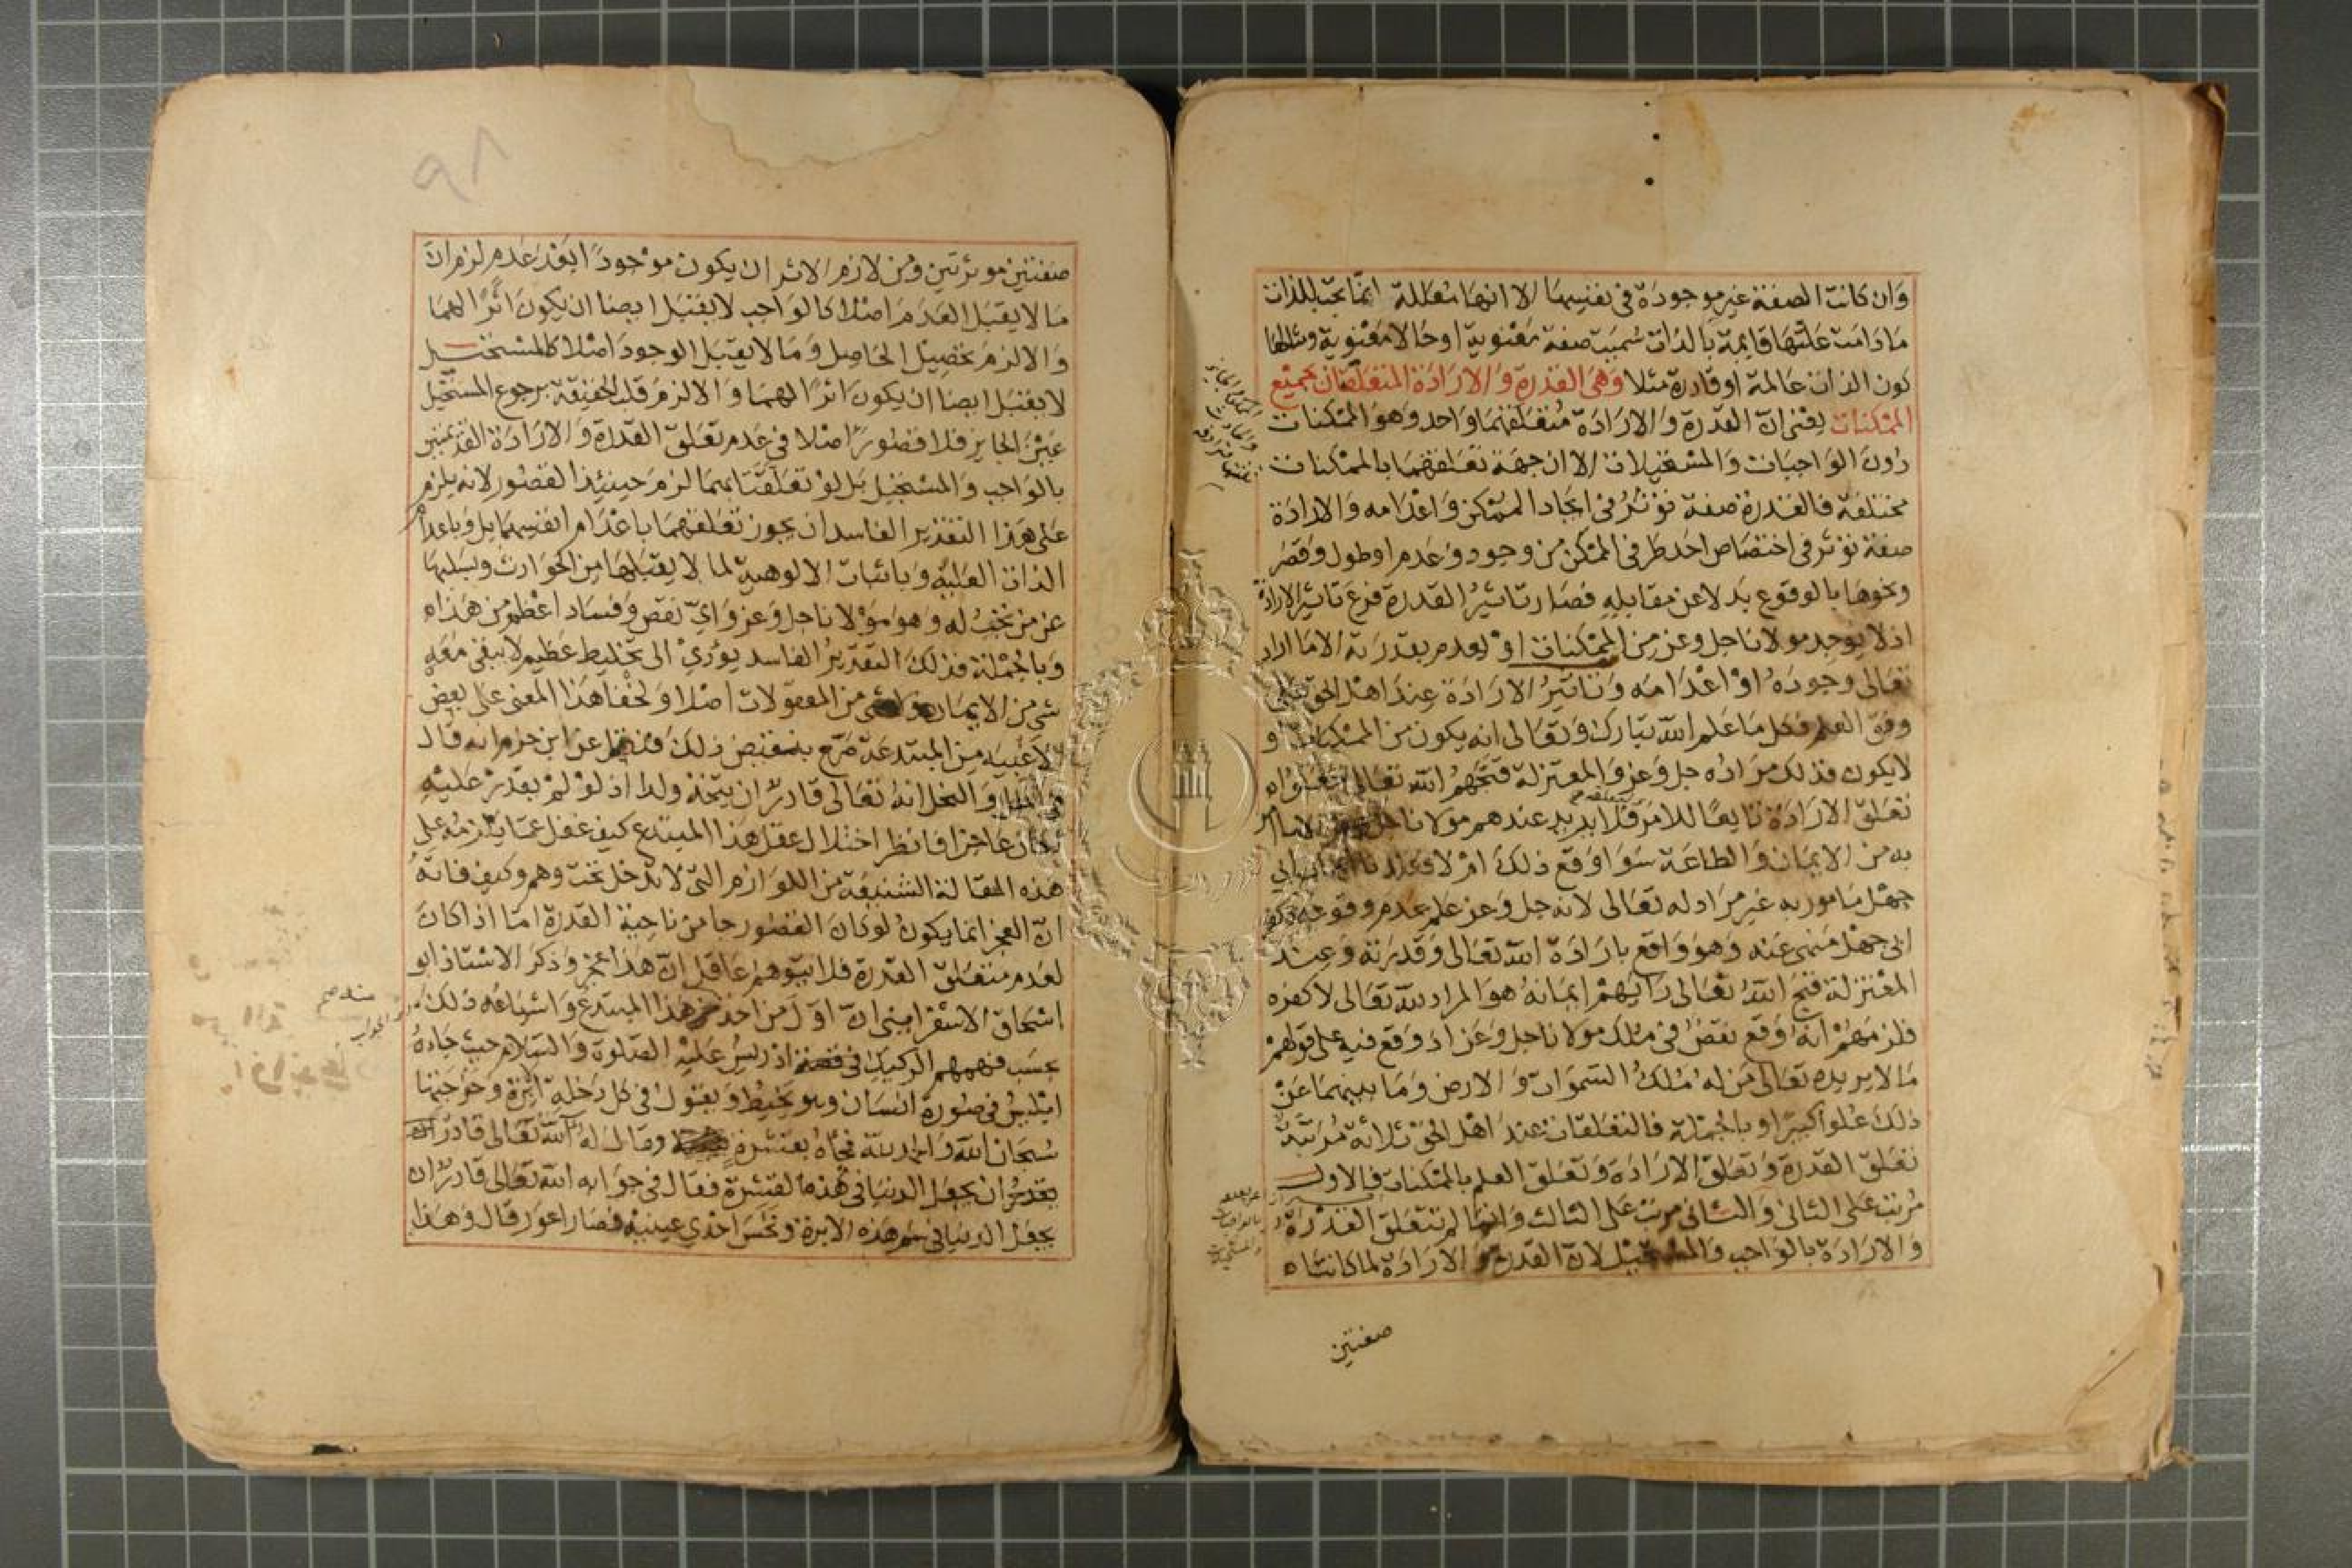 وان كانت الصفة غير موجودة في نفسها الا انها معللة انما تجب للذات
مادامت علتها قايمة بالذات سميت صفة معنوية او حالا معنوية ومثالها
كون الذات عالمة او قادرة مثلا وهي القدرة والارادة المتعلقان بجميع
الممكنات يعني ان القدرة والارادة متعلقهما واحد وهو الممكنات
دون الواجبات والمستحيلات الا ان جهة تعلقهما بالممكنات
مختلفة فالقدرة صفة توثر في ايجاد الممكن واعدامه والارادة
صفة توثر في اختصاص احد طرفي الممكن من وجود وعدم او طول وقصر
ونحوها بالوقوع بدلا عن مقابله فصار تاثير القدرة فرع تاثير الارادة
اذ لا يوجد مولانا جل وعز من الممكنات او يعدم بقدرته الا ما اراد
تعالى وجوده او اعدامه وتاثير الارادة عند اهل الحق على
وفق العلم فكل ما علم الله تبارك وتعالى انه يكون من الممكنات او
لا يكون فذلك مراده جل وعز والمعتزلة قبحهم الله تعالى جعلوا
تعلق الارادة تابعا للامر فلا يريد عندهم مولانا جل وعز الا ما امر
به من الايمان والطاعة سوا وقع ذلك ام لا فعندنا ايمان ابي
جهل مامور به غير مراد له تعالى لانه جل وعز علم عدم وقوعه وكفر
ابي جهل منهي عنه وهو واقع بارادة الله تعالى وقدرته وعند
المعتزلة قبح الله تعالى رايهم ايمانه هو المراد لله تعالى لا كفره
فلزمهم انه وقع نقص في ملك مولانا جل وعز اذ وقع فيه على قولهم
ما لا يريده تعالى من له ملك السموات والارض وما بينهما عن
ذلك علوا كبيرا وبالجملة فالتعلقات عند اهل الحق ثلاثة مرتبة
تعلق القدرة وتعلق الارادة وتعلق العلم بالممكنات فالاول
مرتب على الثاني والثاني مرتب على الثالث وانما لم تتعلق القدرة
والارادة بالواجب والمستحيل لان القدرة والارادة لما كانتا
صفتين
صفتين موثرتين ومن لازم الاثر ان يكون موجودا بعد عدم لزم ان
ما لا يقبل العدم اصلا كالواجب لا يقبل ايضا ان يكون اثرا لهما
والا لزم تحصيل الحاصل وما لا يقبل الوجود اصلا كالمستحيل
لا يقبل ايضا ان يكون اثرا لهما والا لزم قلب الحقيقة برجوع المستحيل
عين الجايز فلا قصور اصلا في عدم تعلق القدرة والارادة القديمتين
بالواجب والمستحيل بل لو تعلقتا بهما لزم حينئذ القصور لانه يلزم
على هذا التقدير الفاسد ان يجوز تعلقهما باعدام انفسهما بل وباعدام
الذات العلية وباثبات الالوهية لما لا يقبلها من الحوادث وبسلبها
عن من تجب له وهو مولانا جل وعز واي نقص وفساد اعظم من هذا
وبالجملة فذلك التقدير الفاسد يودي الى تخليط عظيم لا يبقى معه
شي من الايمان ولا شي من المعقولات اصلا ولخفا هذا المعنى على بعض
الاغبيه من المبتدعة صرح بنقيض ذلك فنقل عن ابن حزم انه قال
في الملل والنحل انه تعالى قادر ان يتخذ ولدا اذ لو لم يقدر عليه
لكان عاجزا فانظر اختلال عقل هذا المبتدع كيف غفل عما يلزمه على
هذه المقالة الشنيعة من اللوازم التي لا تدخل تحت وهم وكيف فاته
ان العجز انما يكون لو كان القصور جا من ناحية القدرة اما اذا كان
لعدم متعلق القدرة فلا يتوهم عاقل ان هذا عجز وذكر الاستاذ ابو
اسحاق الاسفرايني ان اول من اخذ من هذا المبتدع واشياعه ذلك
بحسب فهمهم الركيك في قصة ادريس عليه الصلوة والسلام حيث جاءه
ابليس في صورة انسان وهو يخيط ويقول في كل دخلة ابرة وخرجتها
سبحان الله والحمد لله فجاه بقشرة وقال له الله تعالى قادر
يقدر ان يجعل الدنيا في هذه القشرة فقال في جوابه الله تعالى قادر ان
يجعل الدنيا في سم هذه الابرة ونخس احدي عينيه فصار اعور قال وهذا